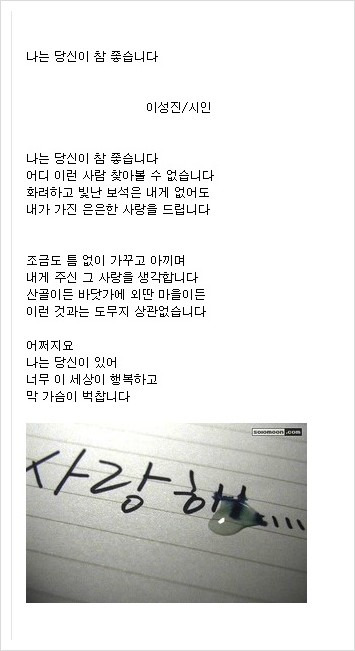 나는 당신이 참 좋습니다
이성진/시인
나는 당신이 참 좋습니다
어디 이런 사람 찾아볼 수 없습니다
화려하고 빛난 보석은 내게 없어도
내가 가진 은은한 사랑을 드립니다
조금도 틈 없이 가꾸고 아끼며
내게 주신 그 사랑을 생각합니다
산골이든 바닷가에 외딴 마을이든
이런 것과는 도무지 상관없습니다
어쩌지요
나는 당신이 있어
너무 이 세상이 행복하고
막 가슴이 벅찹니다
solomoon.com
사랑해....